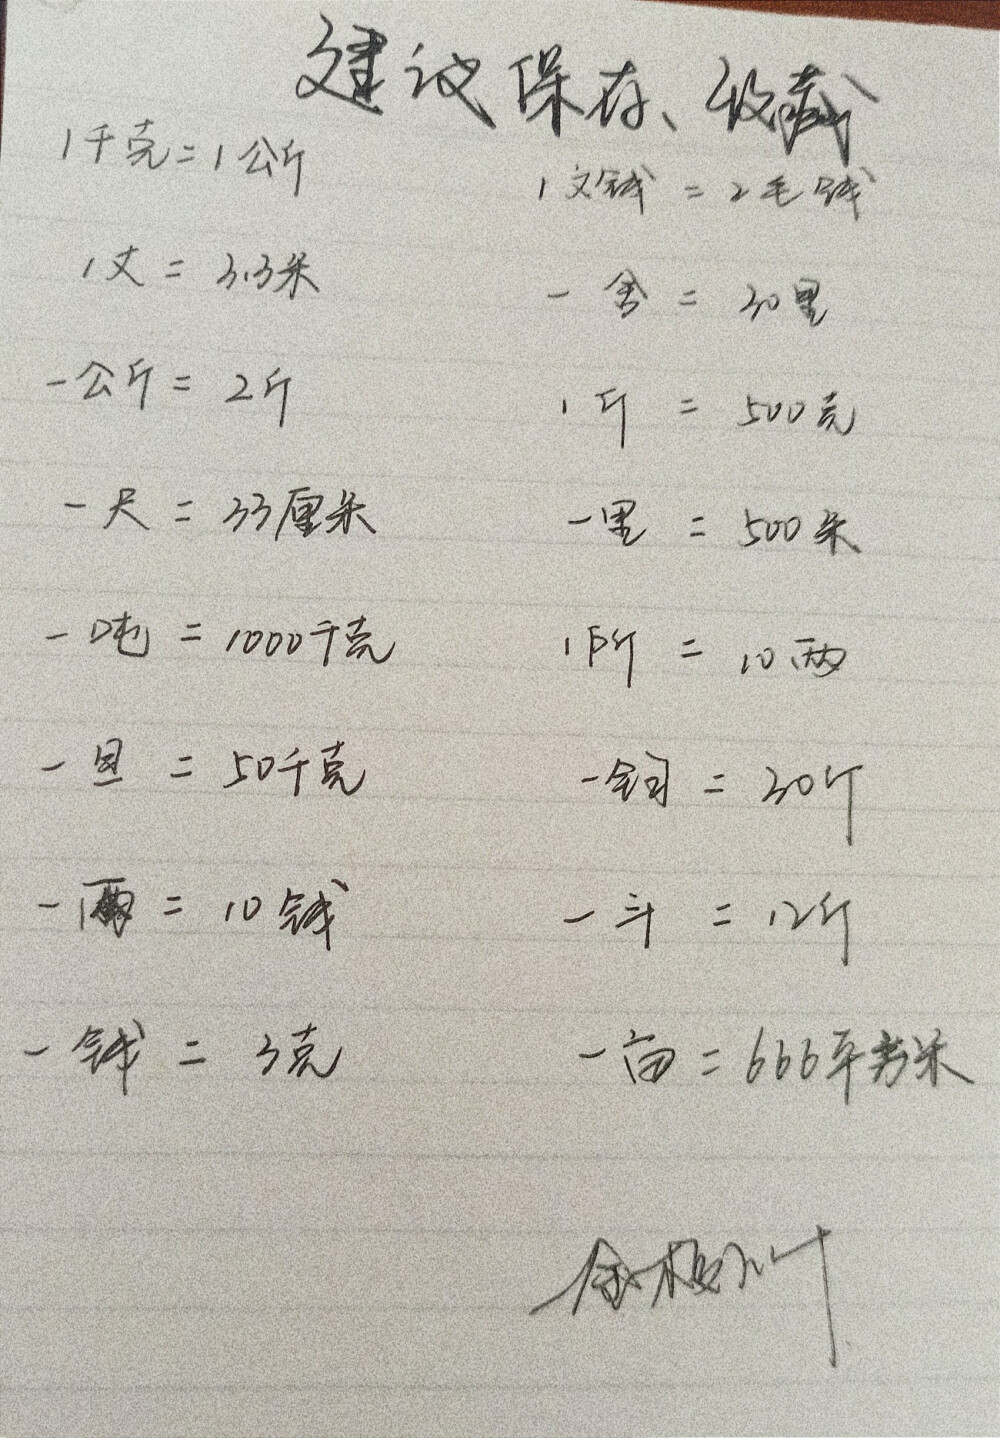 建议保存、收藏
1千克=1公斤
1文钱=2毛钱
1丈=3.3米
一舍=30里
一公斤=2斤
1斤=500克
一尺=33厘米
一里=500米
一吨=1000千克
1斤=10两
一旦=50千克
一钧=30斤
一两=10钱
一斗=12斤
一钱=3克
一亩=666平方米